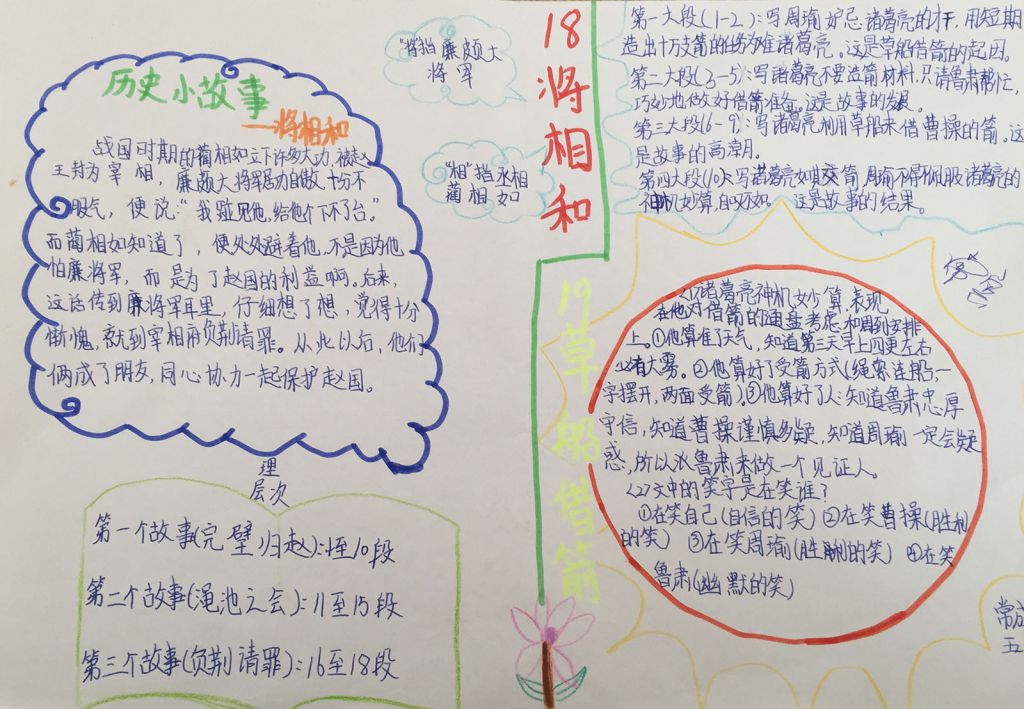 历史小故事
—将相和
战国时期的蔺相如立下许多大功,被赵
王封为宰相,廉颇大将军居功自傲,十分不
服气,便说:“我碰见他,给他个下不了台。”
而蔺相如知道了,便处处避着他,不是因为他
怕廉将军,而是为了赵国的利益啊。后来,
这话传到廉将军耳里,仔细想了想,觉得十分
惭愧,就到宰相府负荆请罪。从此以后,他们
俩成了朋友,同心协力一起保护赵国。
理
层次
第一个故事(完璧归赵):1至10段
第二个故事(渑池之会):11至15段
第三个故事(负荆请罪):16至18段
“将”指廉颇大
将军
“相”指丞相
蔺相如
18
将相和
19草船借箭
第一大段(1-2):写周瑜妒忌诸葛亮的才,用短期
造出十万支箭的任务为难诸葛亮。这是草船借箭的起因。
第二大段(3-5):写诸葛亮不要造箭材料,只请鲁肃帮忙,
巧妙地做好借箭准备。这是故事的发展。
第三大段(6-9):写诸葛亮利用草船来借曹操的箭。这
是故事的高潮。
第四大段(10):写诸葛亮如期交箭,周瑜不得佩服诸葛亮的
神机妙算,自叹不如。这是故事的结果。
<1>诸葛亮神机妙算,表现
在他对借箭的通盘考虑和周到安排
上。①他算准了天气,知道第三天早上四更左右
必有大雾。②他算好了受箭方式(绳索连船,一
字摆开,两面受箭)。③他算好了人:知道鲁肃忠厚
守信,知道曹操谨慎多疑,知道周瑜一定会疑
惑,所以次鲁肃来做一个见证人。
<2>文中的笑字是在笑谁?
①在笑自己(自信的笑)②在笑曹操(胜利
的笑) ③在笑周瑜(胜利的笑) ④在笑
鲁肃(幽默的笑)
五